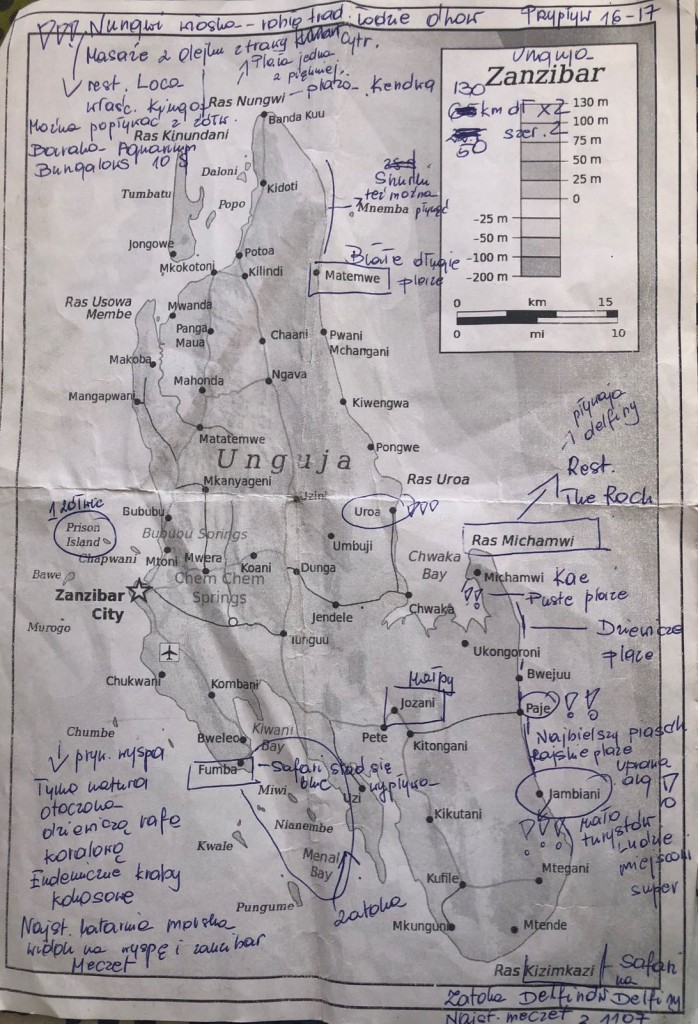 Nungwi wioska - robią trad. łodzie dhow Przypływ 16-17
Masaże z olejku z trawy cytr.
Plaża jedna
z piękniej.
rest. Loca
właśc. Kingo
plaża Kendwa
Ras Nungwi
Banda Kuu
Można popłynąć z żółw.
Ras Kinundani
Baraka Aquarium
Bungalows 10 $
Unguja
Zanzibar
130
km dł x2
szer. 2
50
130 m
100 m
75 m
50 m
25 m
0
-25 m
-50 m
-100 m
-200 m
0 km 15
0 mi 10
Daloni
Tumbatu
Popo
Kidoti
Snurki
też można
Mnemba płynąć
Jongowe
Potoa
Mkokotoni
Kilindi
Białe długie
plaże
Matemwe
Ras Usowa
Membe
Mwanda
Panga
Maua
Chaani
Pwani
Mchangani
Makoba
Mahonda
Ngava
Mangapwani
Kiwengwa
Matatemwe
Pongwe
pływają
delfiny
Unguja
Mkanyageni
Ras Uroa
Rest.
The Rock
Uzini
1 żółwie
Prison
Island
Bububu
Uroa
Bububu Springs
Umbuji
Ras Michamwi
Chapwani
Mtoni
Mwera
Koani
Chwaka
Bay
Bawe
Chem Chem
Springs
Dunga
Michamwi Kae
Puste plaże
Zanzibar
City
Jendele
Chwaka
Murogo
Tunguu
Dziewicze
plaże
Ukongoroni
Chukwani
Kombani
Małpy
Jozani
Bwejuu
Paje
Chumbe
Bweleo
Kiwani
Bay
Pete
Kitongani
Najbielszy piasek
rajskie plaże
uprawa
alg
pryw. wyspa
Tylko natura
otoczona
dziewiczą rafą
koralową
Endemiczne kraby
kokosowe
Fumba
Safari stąd się
wypływa
Miwi
Uzi
Jambiani
Nianembe
Kikutani
mało
turystów
ludzie
miejscowi
super
Kwale
Menai
Bay
Mtegani
Kufile
Pungume
zatoka
Najst. latarnia morska
widok na wyspę i zanzibar
Meczet
Mkunguni
Mtende
Ras Kizimkazi
Safari
na
Delfiny
Zatoka Delfinów
Najst. meczet z 1107